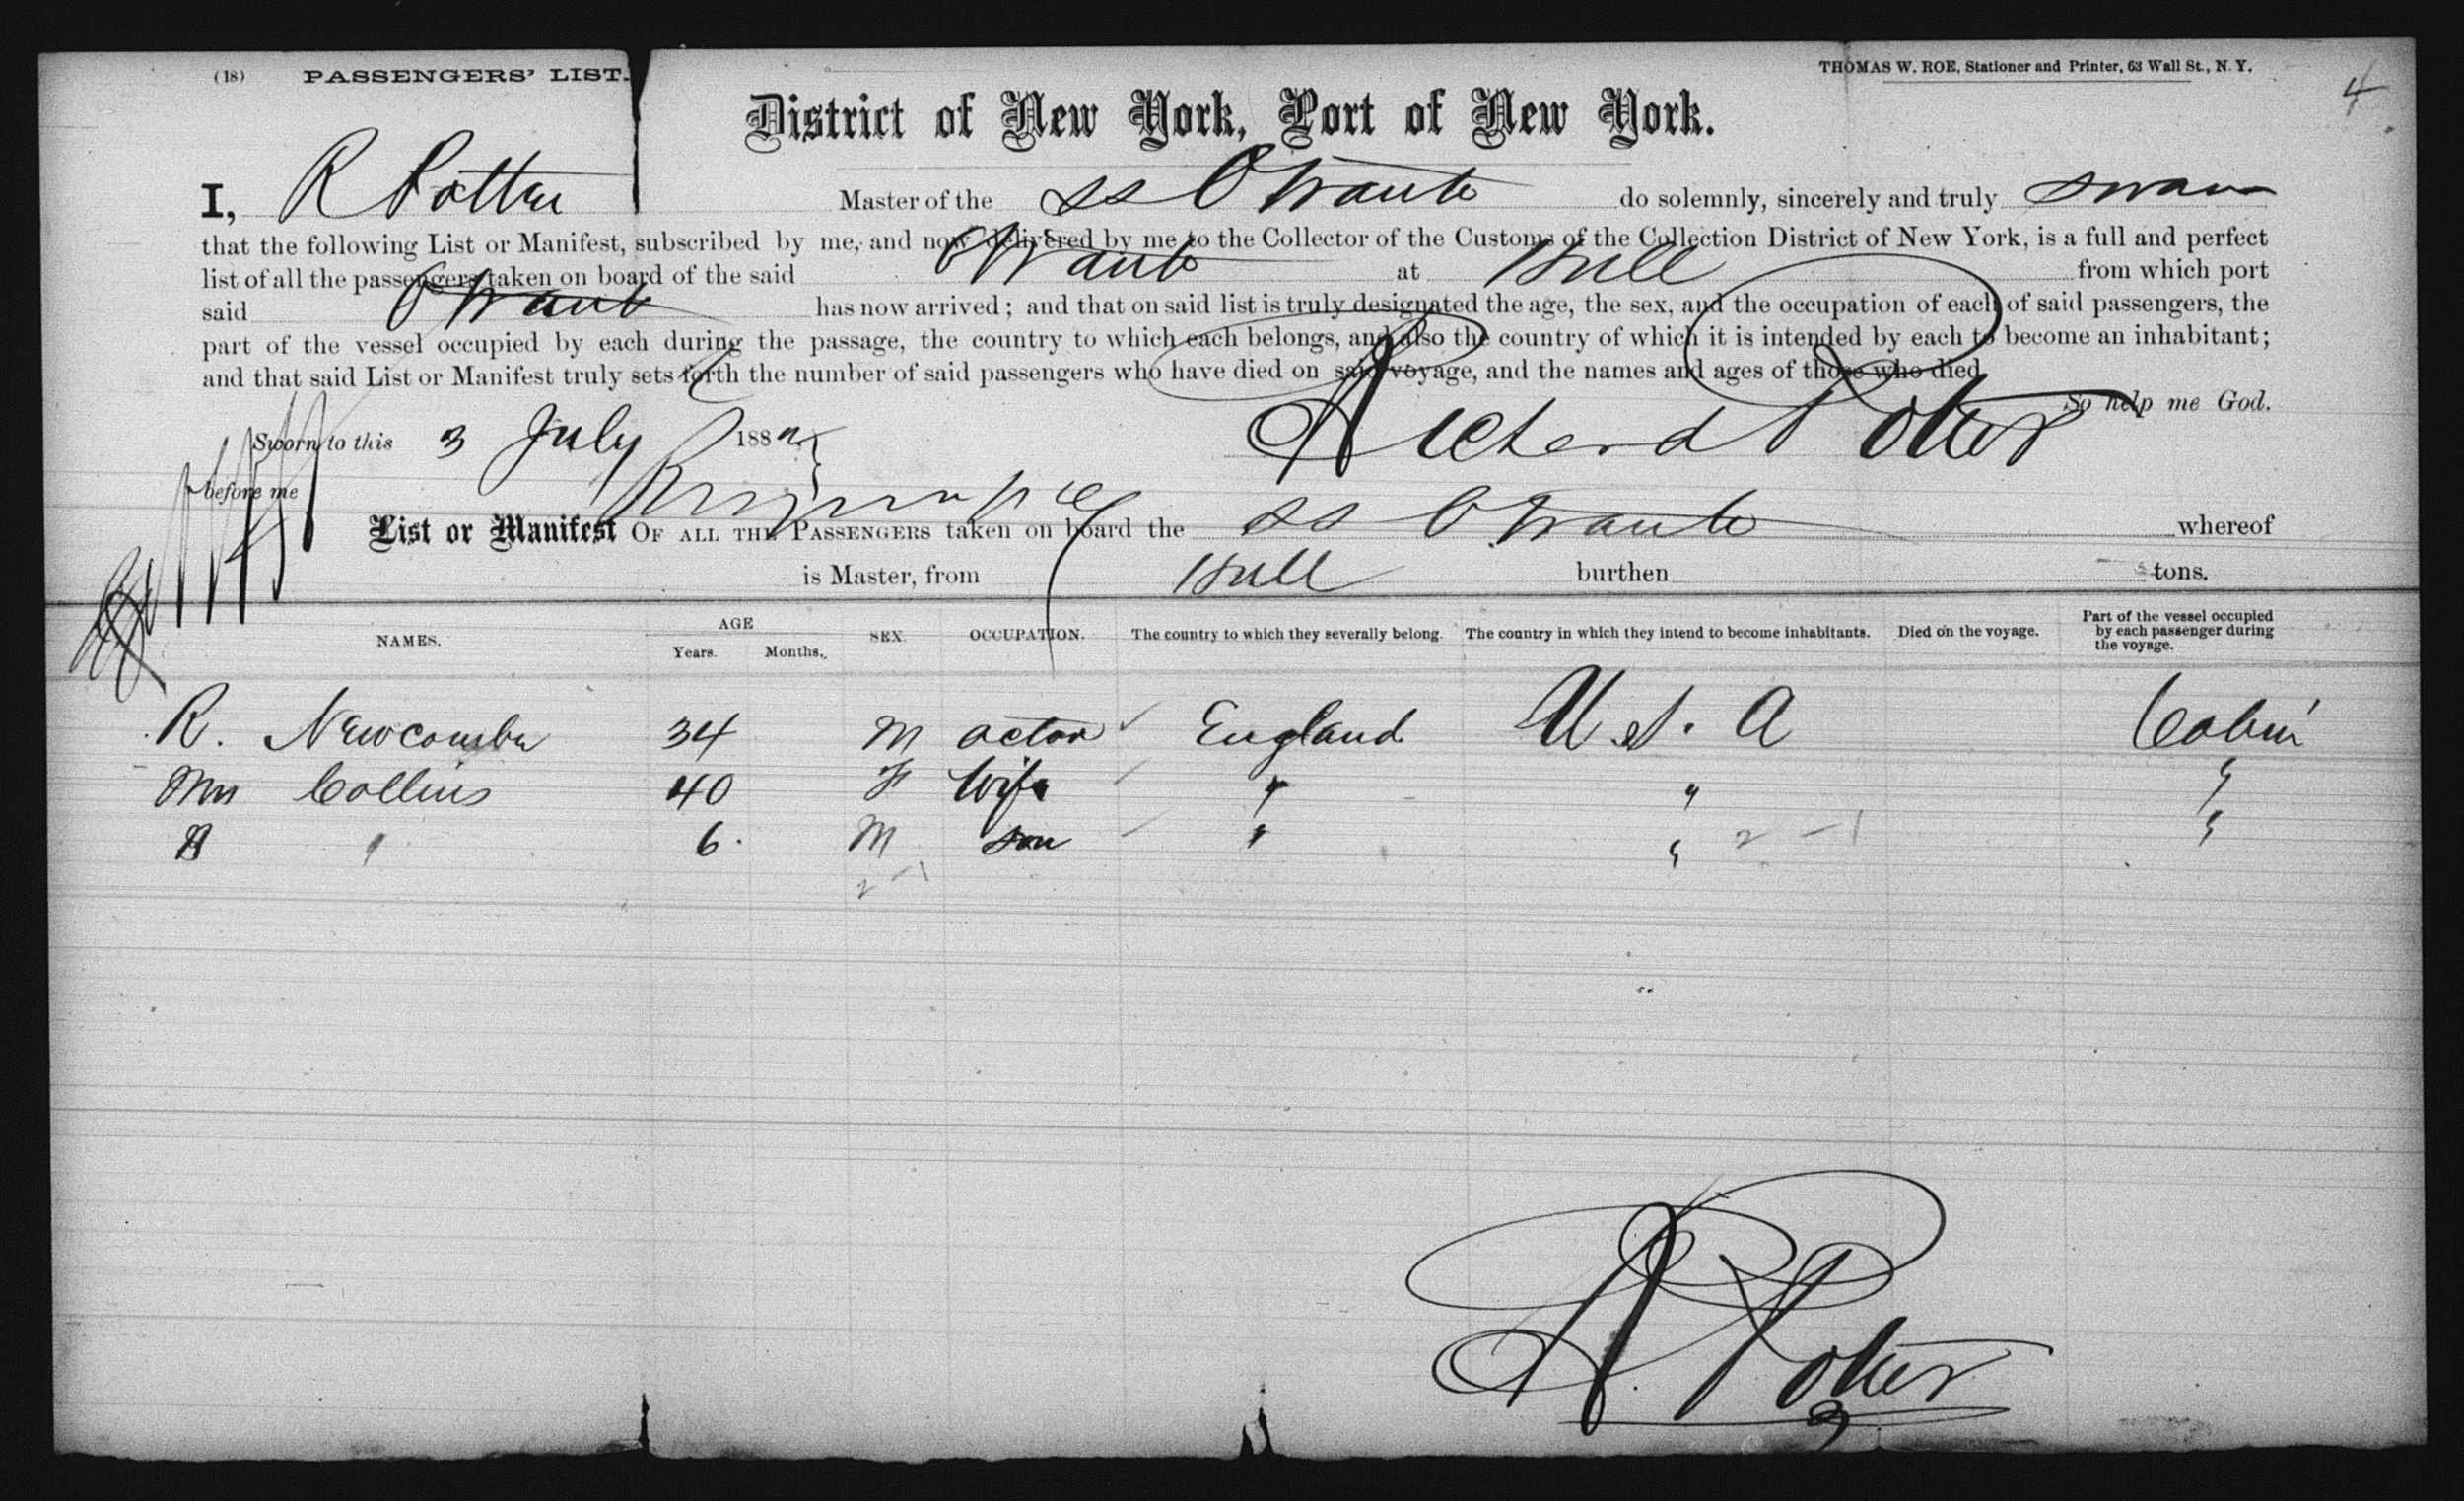 (18) PASSENGERS' LIST.
THOMAS W. ROE, Stationer and Printer, 63 Wall St., N. Y.
4
District of New York, Port of New York.
I, R Potter Master of the ss Otranto do solemnly, sincerely and truly swear
that the following List or Manifest, subscribed by me, and now delivered by me to the Collector of the Customs of the Collection District of New York, is a full and perfect
list of all the passengers taken on board of the said Otranto at Hull from which port
said Otranto has now arrived; and that on said list is truly designated the age, the sex, and the occupation of each of said passengers, the
part of the vessel occupied by each during the passage, the country to which each belongs, and also the country of which it is intended by each to become an inhabitant;
and that said List or Manifest truly sets forth the number of said passengers who have died on said voyage, and the names and ages of those who died.
So help me God.
Sworn to this 3 July 1882 Richard Potter
before me
List or Manifest OF ALL THE PASSENGERS taken on board the ss Otranto whereof
is Master, from Hull burthen tons.
NAMES. AGE Years. Months. SEX. OCCUPATION. The country to which they severally belong. The country in which they intend to become inhabitants. Died on the voyage. Part of the vessel occupied by each passenger during the voyage.
R. Newcombe 34 M actor England U S. A Cabin
Mrs Collins 40 F Wife " " "
" 6. M son " " 2 - 1 "
2 - 1
R. Potter
3